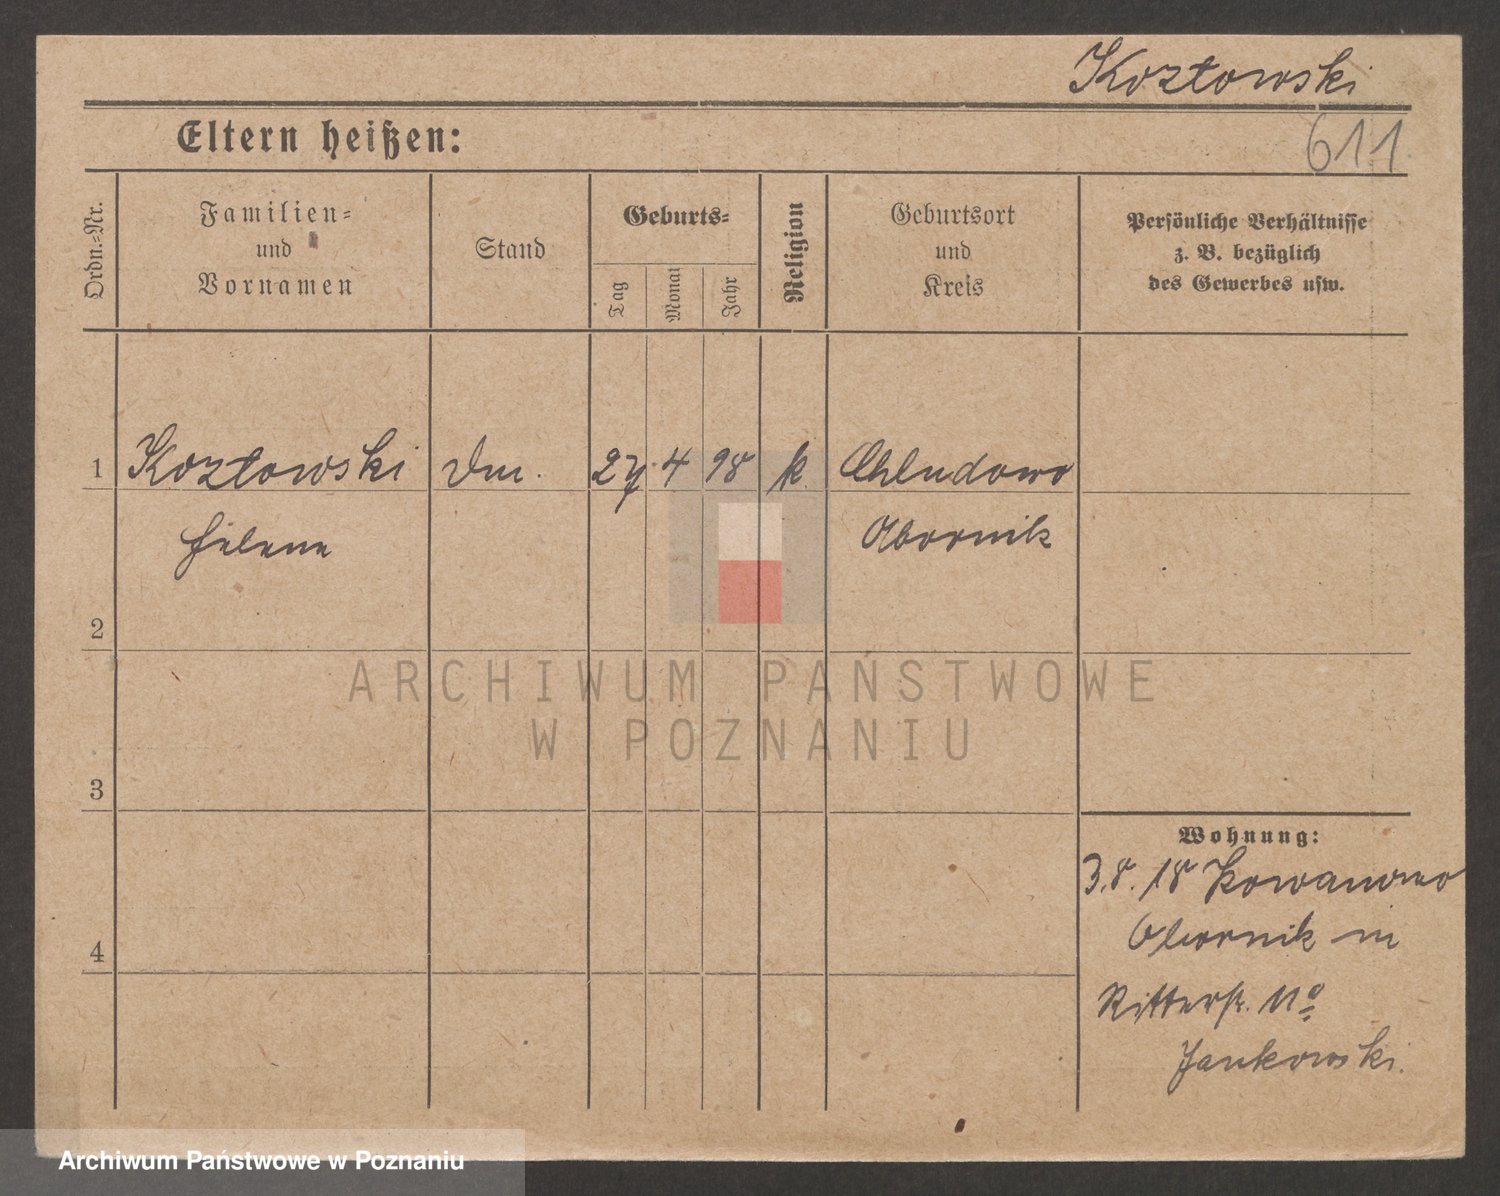 Kozłowski
611
Eltern heißen:
Ordn.-Nr.
Familien-
und
Vornamen
Stand
Geburts-
Tag
Monat
Jahr
Religion
Geburtsort
und
Kreis
Persönliche Verhältnisse
z. B. bezüglich
des Gewerbes usw.
1 Kozłowski 27 4 98 k. Chludowo
Helene Obornik
2
3
4
Wohnung:
3.8.18 Kowanowo
Obornik in
Ritterstr. 11a
Jankowski.
ARCHIWUM PAŃSTWOWE
W POZNANIU
Archiwum Państwowe w Poznaniu